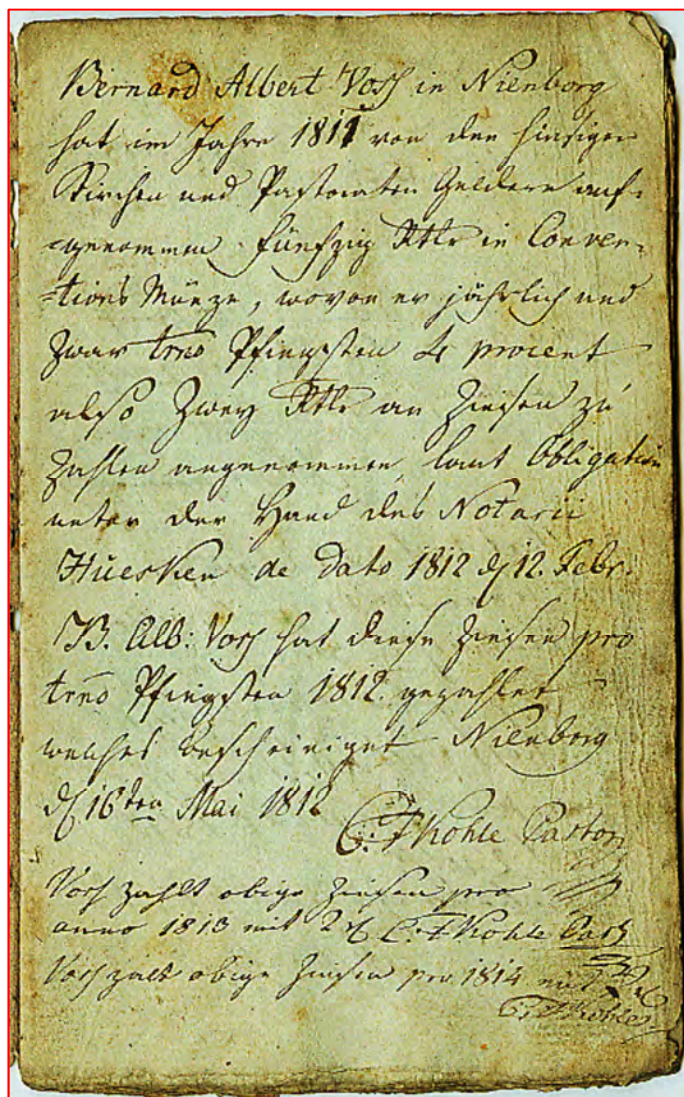 Bernard Albert Vosß in Nienborg
hat im Jahre 1811 von den hiesigen
Kirchen und Pastoraten Geldern auf-
=genommen fünfzig Rtlr in Conven-
=tions Münze, wovon er jährlich und
zwar trno Pfingsten 4 procent
also Zwey Rtlr an Zinsen zu
zahlen angenommen, laut Obligation
unter der Hand des Notarii
Huesken de dato 1812 d 12. Febr.
B. Alb: Vosß hat diese Zinsen pro
trno Pfingsten 1812. gezahlet
welches bescheiniget Nienborg
d 16ten Mai 1812
C: F Kohle Pastor
Vosß zahlt obige Zinsen pro
anno 1813 mit 2 C: F Kohle Past
Vosß zalt obige Zinsen pro 1814 mit
C: F Kohle